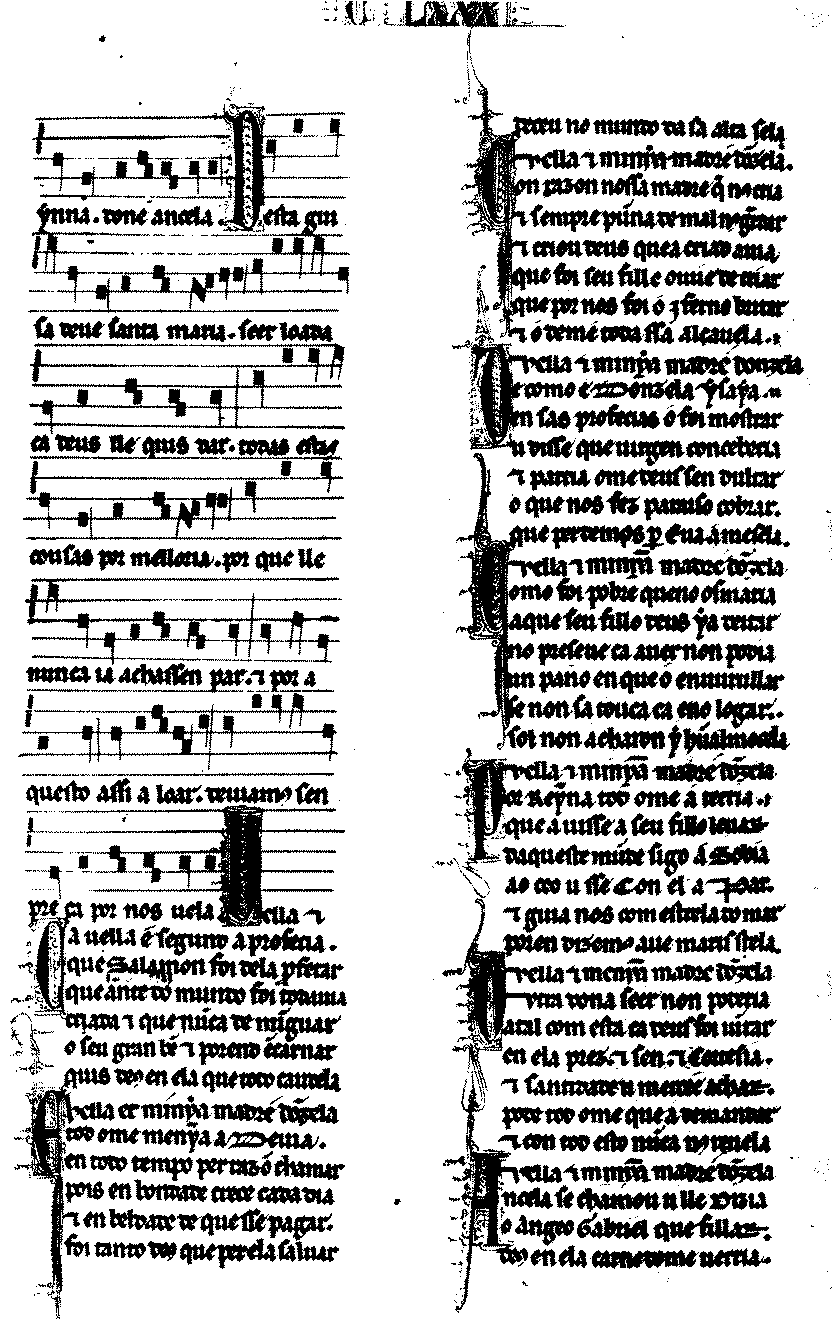 C LXXX
ỹnna. done ancela. D esta gui
sa deue santa maria. seer loada
ca deus lle quis dar. todas estas
cousas por melloria. por que lle
nunca ia achassen par. ⁊ por a
questo assi a loar. deuiamꝯ sen
pre ca por nos uela Vella ⁊
Va uella é segund a profecia.
que Salamon foi dela pfetar
que ante do mundo foi todauia
criada ⁊ que nũca de mĩguar
o seu gran bẽ ⁊ porend ẽcarnar
quis deꝯ en ela que todo caudela
Vella et minỹa madre dõzela
E tod ome menỹa a
en todo tempo per razõ chamar
pois en bondade crece cada dia
⁊ en beldade de que sse pagar.
foi tanto deꝯ que per ela saluar
no mundo da sa alta sela
Vella ⁊ minỹa madre dõzela.
Con razon nossa madre q̃
⁊ sempre punna de mal
⁊ criou deus que a
que foi seu fill e
que por nos foi o
⁊ o deme toda ssa alcauela.
Vella ⁊ minỹa madre donzela
E como é Donzela ỹsaỹa.
en sas profecias o foi mostrar
u disse que uirgen conceberia
⁊ parria ome deus sen duldar
o que nos fez paraiso cobrar.
que perdemos p Eua a mesela.
Vella ⁊ minỹa madre dõzela
Como foi pobre quen o osmaria
a que seu fillo deus ỹa deitar
no preseue ca auer non podia
un pano en que o enuurullar
se non sa touca ca eno logar.
sol non acharon ỹ hũa almocela
Vella ⁊ minỹa madre dõzela
Por Reỹna tod ome a terria.
que a uisse a seu fillo leuar
daqueste mũdo sigo á Sobia
ao ceo u sse con el a par.
⁊ guia nos com estrela do mar
poren dizemꝯ aue maris stela.
Vella ⁊ menỹa madre dõzela
dona seer non poderia
atal com esta ca deus foi iuntar
en ela prez. ⁊ sen. ⁊ Cortesia.
⁊ santidade u achar.
pode tod ome que a demandar
⁊ con tod esto nũca
Vella ⁊ minỹa madre dõzela
Ancela se chamou u lle Dizia
o Angeo Gabriel que fillar.
deꝯ en ela carne dome uerria.